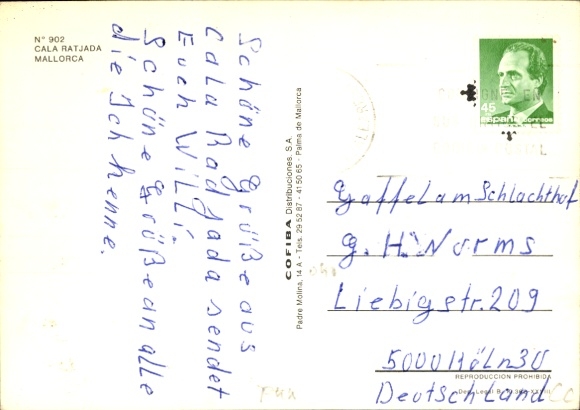 N° 902
CALA RATJADA
MALLORCA
Schöne Grüße aus
Cala Radjada sendet
Euch Willi.
Schöne Grüße an alle
die Ich kenne.
COFIBA Distribuciones, S.A.
Padre Molina, 14 A - Tels. 29 52 87 - 41 50 65 - Palma de Mallorca
45
españa correos
Gaffel am Schlachthof
G. H. Worms
Liebigstr. 209
5000 Köln 30
Deutschland
REPRODUCCION PROHIBIDA